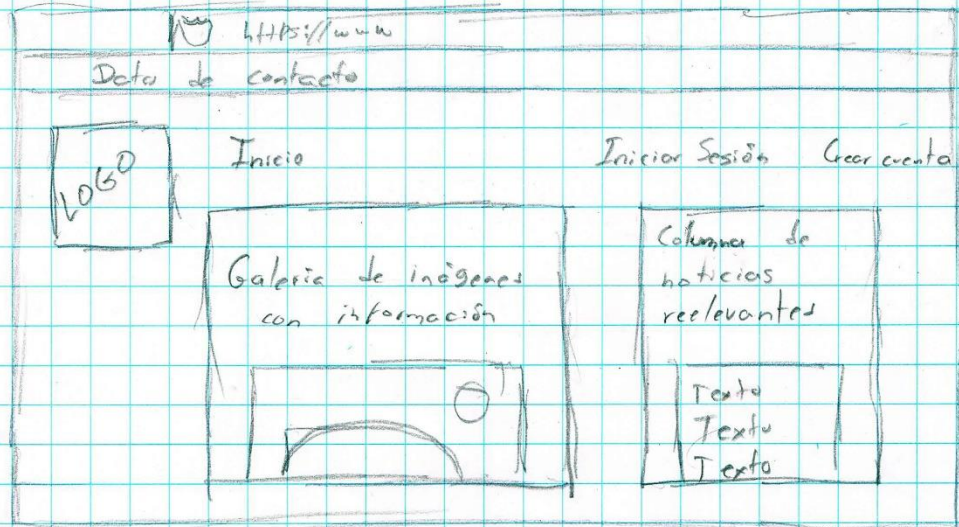 https://www
Datos de contacto
LOGO
Inicio
Iniciar Sesión
Crear cuenta
Galeria de imágenes
con información
Columna de
noticias
reelevantes
Texto
Texto
Texto